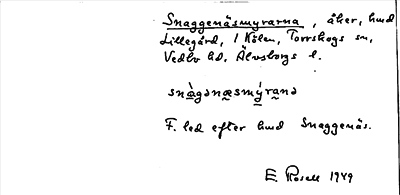 Snaggenäsmyrarna, åker, hmd
Lillegård, 1 Kölen, Torrskogs sn,
Vedbo hd. Älvsborgs l.
snàgənæsmýraṇə
F. led efter hmd Snaggenäs.
E. Rosell 1949